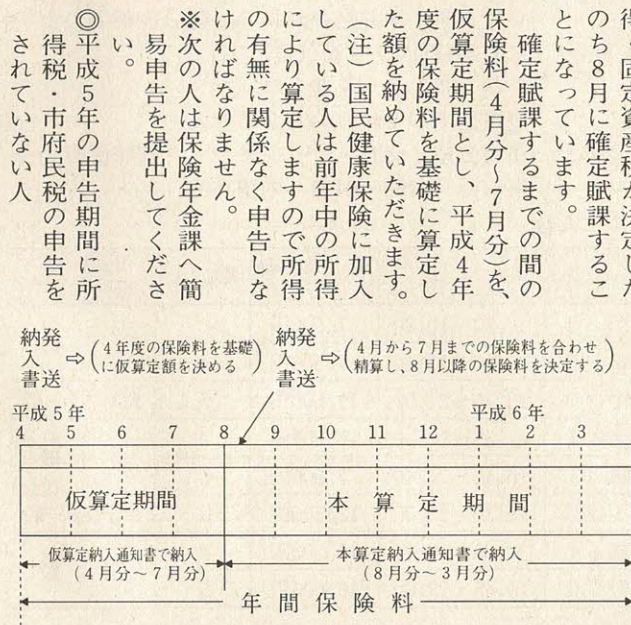 得・固定資産税が決定した
のち8月に確定賦課するこ
とになっています。
確定賦課するまでの間の
保険料(4月分〜7月分)を、
仮算定期間とし、平成4年
度の保険料を基礎に算定し
た額を納めていただきます。
(注)国民健康保険に加入
している人は前年中の所得
により算定しますので所得
の有無に関係なく申告しな
ければなりません。
※次の人は保険年金課へ簡
易申告を提出してくださ
い。
◎平成5年の申告期間に所
得税・市府民税の申告を
されていない人
納入書発送⇨(4年度の保険料を基礎
に仮算定額を決める)
納入書発送⇨(4月から7月までの保険料を合わせ
精算し、8月以降の保険料を決定する)
平成5年 平成6年
4 5 6 7 8 9 10 11 12 1 2 3
仮算定期間 本算定期間
仮算定納入通知書で納入
(4月分〜7月分)
本算定納入通知書で納入
(8月分〜3月分)
年間保険料